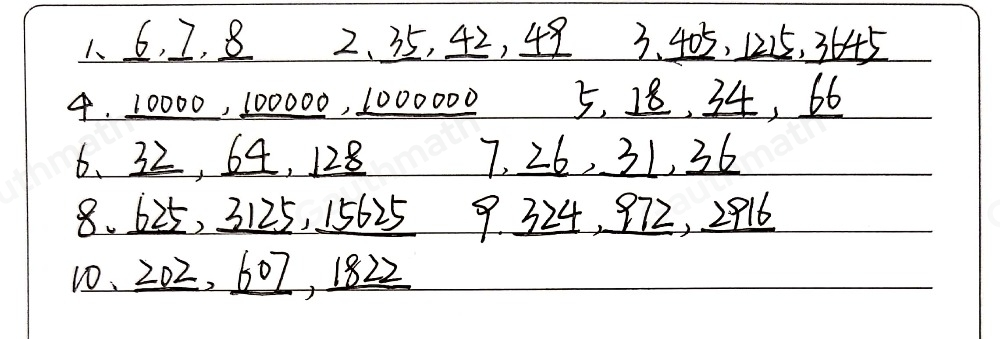 1、6,7,8 2、35,42,49 3、405,1215,3645
4.10000,100000,1000000 5,18,34,66
6、32,64,128 7,26,31,36
8、625,3125,15625 9.324,972,2916
10、202,607,1822